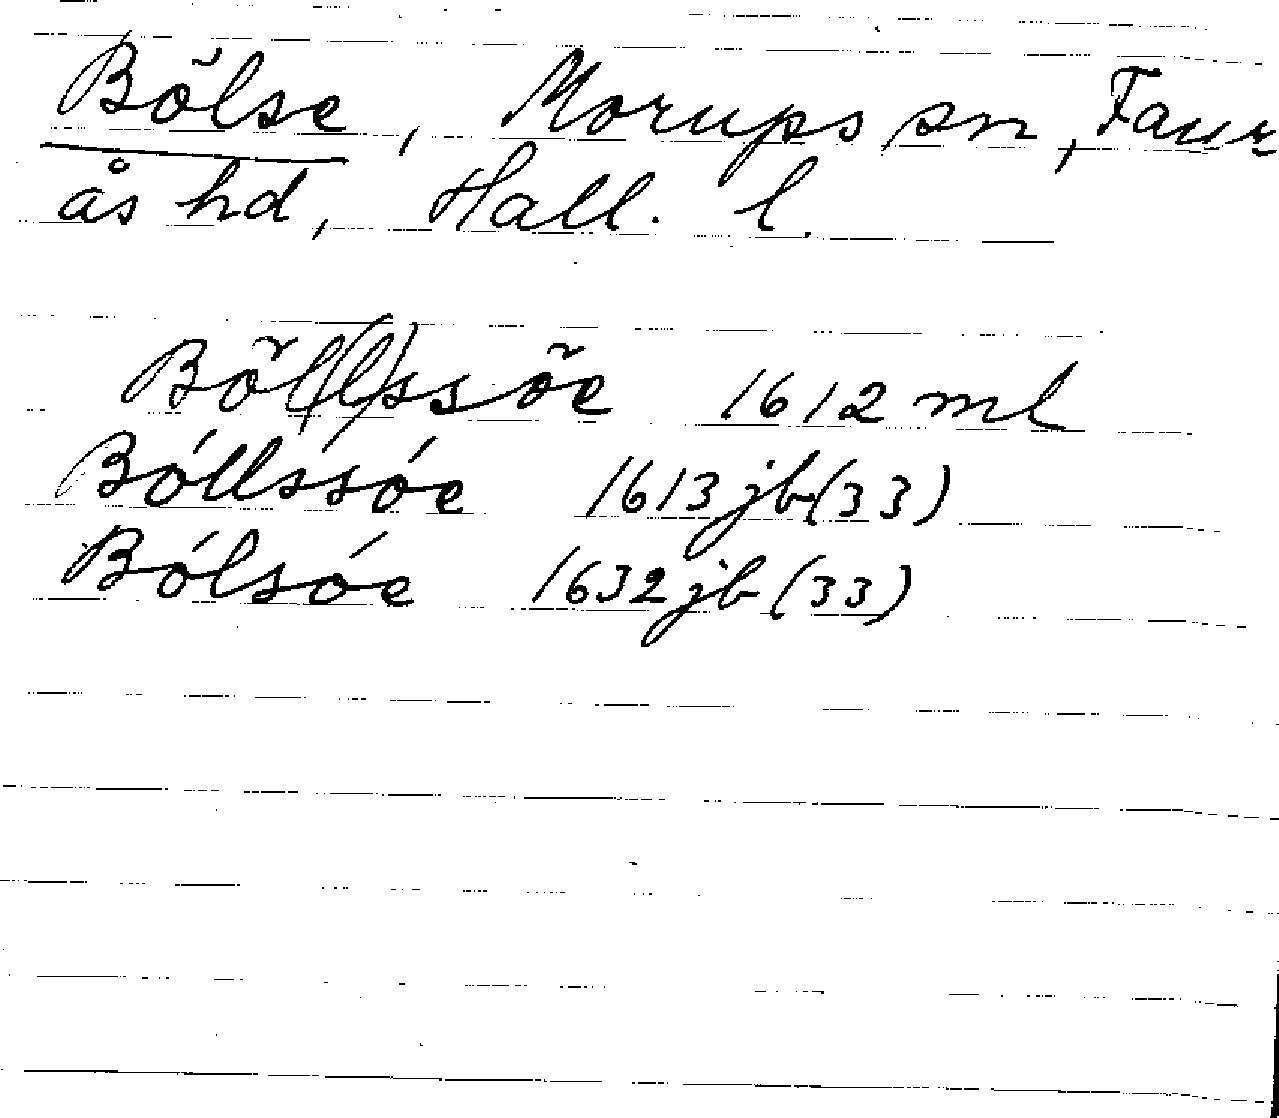 Bölse, Morups sn, Faur
ås hd, Hall. l.
Böl(l)ssöe 1612 ml
Bóllssóe 1613 jb (33)
Bólsóe 1632 jb (33)